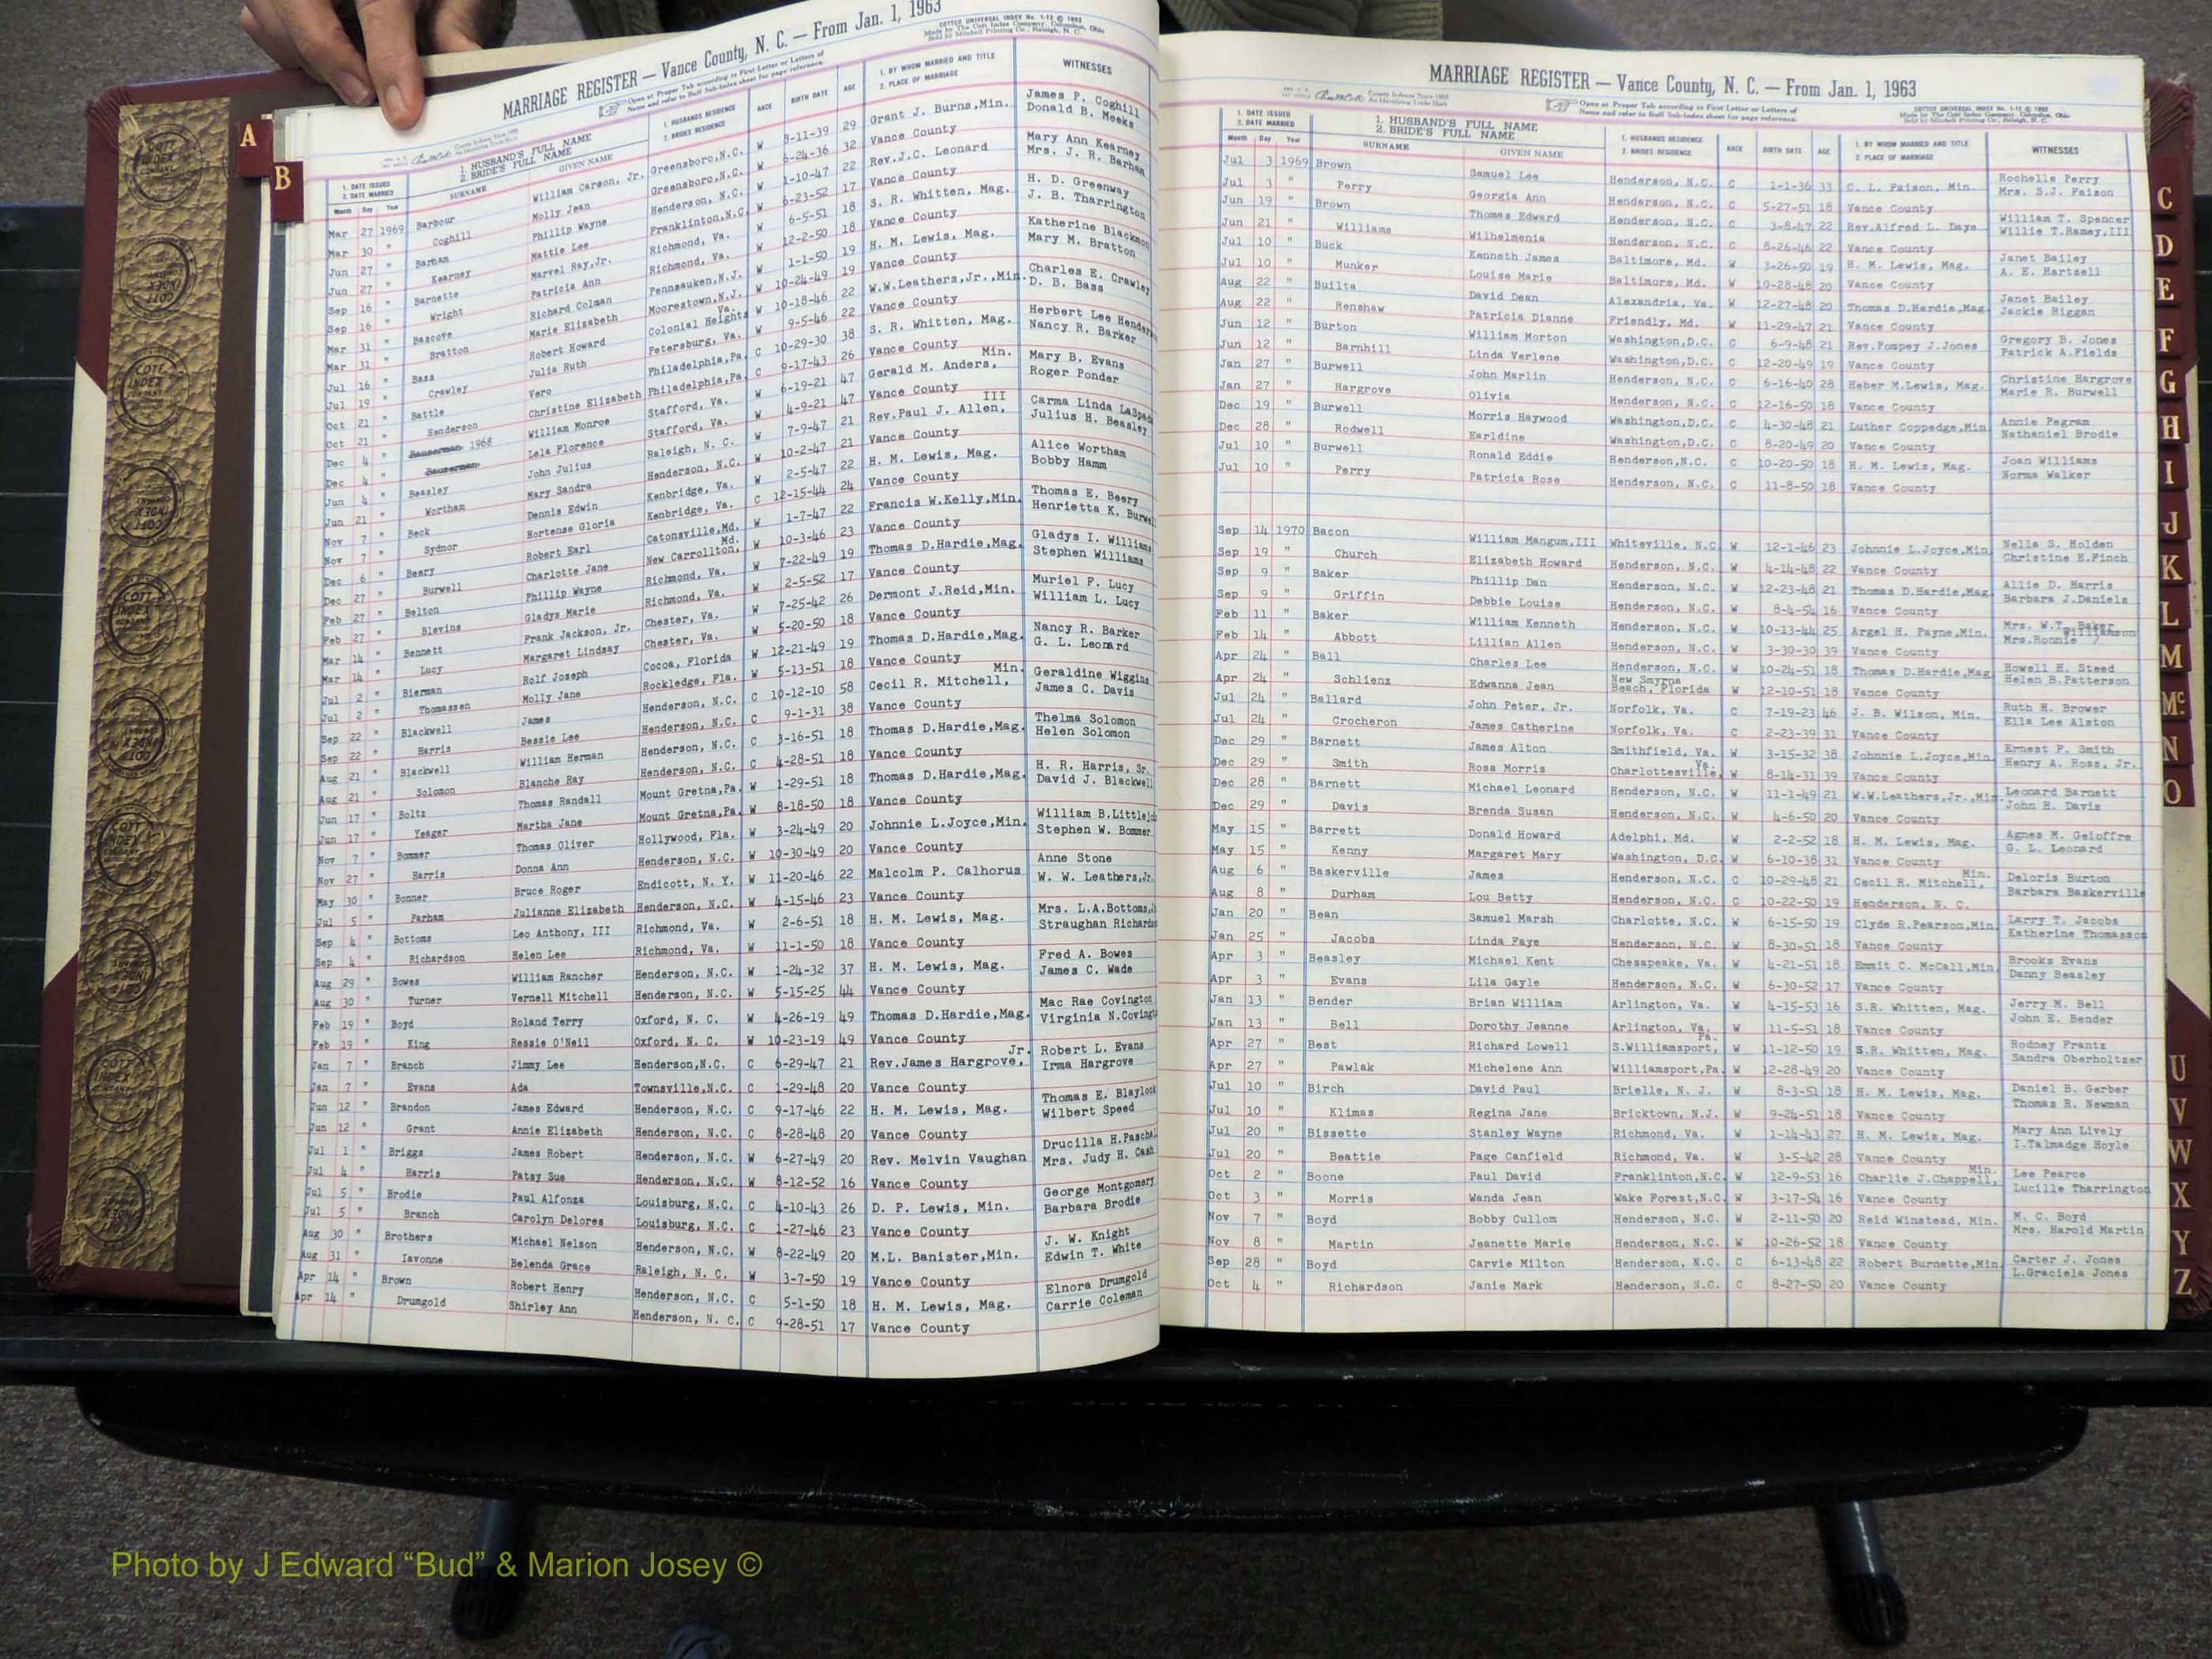 MARRIAGE REGISTER — Vance County, N. C. — From Jan. 1, 1963
COTTCO UNIVERSAL INDEX No. 1-12 © 1992
Made by The Cott Index Company, Columbus, Ohio
Sold by Mitchell Printing Co., Raleigh, N. C.
Open at Proper Tab according to First Letter or Letters of
Name and refer to Buff Sub-Index sheet for page reference.
1. DATE ISSUED 1. HUSBAND'S FULL NAME 1. HUSBANDS RESIDENCE RACE BIRTH DATE AGE 1. BY WHOM MARRIED AND TITLE WITNESSES
2. DATE MARRIED 2. BRIDE'S FULL NAME 2. BRIDES RESIDENCE 2. PLACE OF MARRIAGE
Month Day Year SURNAME GIVEN NAME
Mar 27 1969 Barbour William Carson, Jr. Greensboro,N.C. W 8-11-39 29 Grant J. Burns,Min. James P. Coghill
Mar 30 " Coghill Molly Jean Greensboro,N.C. W 6-24-36 32 Vance County Donald B. Meeks
Jun 27 " Barham Phillip Wayne Henderson, N.C. W 1-10-47 22 Rev.J.C. Leonard Mary Ann Kearney
Jun 27 " Kearney Mattie Lee Franklinton,N.C. W 6-23-52 17 Vance County Mrs. J. R. Barham
Sep 16 " Barnette Marvel Ray,Jr. Richmond, Va. W 6-5-51 18 S. R. Whitten, Mag. H. D. Greenway
Sep 16 " Wright Patricia Ann Richmond, Va. W 12-2-50 18 Vance County J. B. Tharrington
Mar 31 " Bascove Richard Colman Pennsauken,N.J. W 1-1-50 19 H. M. Lewis, Mag. Katherine Blackmon
Mar 31 " Bratton Marie Elizabeth Moorestown,N.J. W 10-24-49 19 Vance County Mary M. Bratton
Jul 16 " Bass Robert Howard Colonial Heights Va. W 10-18-46 22 W.W.Leathers,Jr.,Min. Charles E. Crawley
Jul 19 " Crawley Julia Ruth Petersburg, Va. W 9-5-46 22 Vance County D. B. Bass
Oct 21 " Battle Vero Philadelphia,Pa. C 10-29-30 38 S. R. Whitten, Mag. Herbert Lee Henders
Oct 21 " Henderson Christine Elizabeth Philadelphia,Pa. C 9-17-43 26 Vance County Nancy R. Barker
Dec 4 " Bauserman 1968 William Monroe Stafford, Va. W 6-19-21 47 Gerald M. Anders, Min. Mary B. Evans
Dec 4 " Bauserman Lela Florence Stafford, Va. W 4-9-21 47 Vance County Roger Ponder
Jun 4 " Beasley John Julius Raleigh, N. C. W 7-9-47 21 Rev.Paul J. Allen, III Carma Linda LaSpad
Jun 21 " Wortham Mary Sandra Henderson, N.C. W 10-2-47 21 Vance County Julius H. Beasley
Nov 7 " Beck Dennis Edwin Kenbridge, Va. W 2-5-47 22 H. M. Lewis, Mag. Alice Wortham
Nov 7 " Sydnor Hortense Gloria Kenbridge, Va. C 12-15-44 24 Vance County Bobby Hamm
Dec 6 " Beery Robert Earl Catonsville,Md. W 1-7-47 22 Francis W.Kelly,Min. Thomas E. Beery
Dec 27 " Burwell Charlotte Jane New Carrollton, Md. W 10-3-46 23 Vance County Henrietta K. Burwel
Feb 27 " Belton Phillip Wayne Richmond, Va. W 7-22-49 19 Thomas D.Hardie,Mag. Gladys I. Williams
Feb 27 " Blevins Gladys Marie Richmond, Va. W 2-5-52 17 Vance County Stephen Williams
Mar 14 " Bennett Frank Jackson, Jr. Chester, Va. W 7-25-42 26 Dermont J.Reid,Min. Muriel P. Lucy
Mar 14 " Lucy Margaret Lindsay Chester, Va. W 5-20-50 18 Vance County William L. Lucy
Jul 2 " Bierman Rolf Joseph Cocoa, Florida W 12-21-49 19 Thomas D.Hardie,Mag. Nancy R. Barker
Jul 2 " Thomassen Molly Jane Rockledge, Fla. W 5-13-51 18 Vance County G. L. Leonard
Sep 22 " Blackwell James Henderson, N.C. C 10-12-10 58 Cecil R. Mitchell, Min. Geraldine Wiggins
Sep 22 " Harris Bessie Lee Henderson, N.C. C 9-1-31 38 Vance County James C. Davis
Aug 21 " Blackwell William Herman Henderson, N.C. C 3-16-51 18 Thomas D.Hardie,Mag. Thelma Solomon
Aug 21 " Solomon Blanche Ray Henderson, N.C. C 4-28-51 18 Vance County Helen Solomon
Jun 17 " Boltz Thomas Randall Mount Gretna,Pa. W 1-29-51 18 Thomas D.Hardie,Mag. H. R. Harris, Sr.
Jun 17 " Yeager Martha Jane Mount Gretna,Pa. W 8-18-50 18 Vance County David J. Blackwell
Nov 7 " Bommer Thomas Oliver Hollywood, Fla. W 3-24-49 20 Johnnie L.Joyce,Min. William B.Littlejo
Nov 27 " Harris Donna Ann Henderson, N.C. W 10-30-49 20 Vance County Stephen W. Bommer
May 30 " Bonner Bruce Roger Endicott, N. Y. W 11-20-46 22 Malcolm P. Calhorus Anne Stone
Jul 5 " Parham Julianne Elizabeth Henderson, N.C. W 4-15-46 23 Vance County W. W. Leathers,Jr.
Sep 4 " Bottoms Leo Anthony, III Richmond, Va. W 2-6-51 18 H. M. Lewis, Mag. Mrs. L.A.Bottoms,J
Sep 4 " Richardson Helen Lee Richmond, Va. W 11-1-50 18 Vance County Straughan Richards
Aug 29 " Bowes William Rancher Henderson, N.C. W 1-24-32 37 H. M. Lewis, Mag. Fred A. Bowes
Aug 30 " Turner Vernell Mitchell Henderson, N.C. W 5-15-25 44 Vance County James C. Wade
Feb 19 " Boyd Roland Terry Oxford, N. C. W 4-26-19 49 Thomas D.Hardie,Mag. Mac Rae Covington
Feb 19 " King Ressie O'Neil Oxford, N. C. W 10-23-19 49 Vance County Virginia N.Covingt
Jan 7 " Branch Jimmy Lee Henderson,N.C. C 6-29-47 21 Rev.James Hargrove, Jr. Robert L. Evans
Jan 7 " Evans Ada Townsville,N.C. C 1-29-48 20 Vance County Irma Hargrove
Jun 12 " Brandon James Edward Henderson, N.C. C 9-17-46 22 H. M. Lewis, Mag. Thomas E. Blaylock
Jun 12 " Grant Annie Elizabeth Henderson, N.C. C 8-28-48 20 Vance County Wilbert Speed
Jul 1 " Briggs James Robert Henderson, N.C. W 6-27-49 20 Rev. Melvin Vaughan Drucilla H.Paschal
Jul 4 " Harris Patsy Sue Henderson, N.C. W 8-12-52 16 Vance County Mrs. Judy H. Cash
Jul 5 " Brodie Paul Alfonza Louisburg, N.C. C 4-10-43 26 D. P. Lewis, Min. George Montgomery
Jul 5 " Branch Carolyn Delores Louisburg, N.C. C 1-27-46 23 Vance County Barbara Brodie
Aug 30 " Brothers Michael Nelson Henderson, N.C. W 8-22-49 20 M.L. Banister,Min. J. W. Knight
Aug 31 " Iavonne Belenda Grace Raleigh, N. C. W 3-7-50 19 Vance County Edwin T. White
Apr 14 " Brown Robert Henry Henderson, N.C. C 5-1-50 18 H. M. Lewis, Mag. Elnora Drumgold
Apr 14 " Drumgold Shirley Ann Henderson, N. C. C 9-28-51 17 Vance County Carrie Coleman
MARRIAGE REGISTER — Vance County, N. C. — From Jan. 1, 1963
Open at Proper Tab according to First Letter or Letters of
Name and refer to Buff Sub-Index sheet for page reference.
COTTCO UNIVERSAL INDEX No. 1-12 © 1992
Made by The Cott Index Company, Columbus, Ohio
Sold by Mitchell Printing Co., Raleigh, N. C.
1. DATE ISSUED 1. HUSBAND'S FULL NAME 1. HUSBANDS RESIDENCE RACE BIRTH DATE AGE 1. BY WHOM MARRIED AND TITLE WITNESSES
2. DATE MARRIED 2. BRIDE'S FULL NAME 2. BRIDES RESIDENCE 2. PLACE OF MARRIAGE
Month Day Year SURNAME GIVEN NAME
Jul 3 1969 Brown Samuel Lee Henderson, N.C. C 1-1-36 33 C. L. Faison, Min. Rochelle Perry
Jul 3 " Perry Georgia Ann Henderson, N.C. C 5-27-51 18 Vance County Mrs. S.J. Faison
Jun 19 " Brown Thomas Edward Henderson, N.C. C 3-8-47 22 Rev.Alfred L. Daye William T. Spencer
Jun 21 " Williams Wilhelmenia Henderson, N.C. C 8-26-46 22 Vance County Willie T.Ramey,III
Jul 10 " Buck Kenneth James Baltimore, Md. W 3-26-50 19 H. M. Lewis, Mag. Janet Bailey
Jul 10 " Munker Louise Marie Baltimore, Md. W 10-28-48 20 Vance County A. E. Hartsell
Aug 22 " Builta David Dean Alexandria, Va. W 12-27-48 20 Thomas D.Hardie,Mag. Janet Bailey
Aug 22 " Renshaw Patricia Dianne Friendly, Md. W 11-29-47 21 Vance County Jackie Riggan
Jun 12 " Burton William Morton Washington,D.C. C 6-9-48 21 Rev.Pompey J.Jones Gregory B. Jones
Jun 12 " Barnhill Linda Verlene Washington,D.C. C 12-20-49 19 Vance County Patrick A.Fields
Jan 27 " Burwell John Marlin Henderson, N.C. C 6-16-40 28 Heber M.Lewis, Mag. Christine Hargrove
Jan 27 " Hargrove Olivia Henderson, N.C. C 12-16-50 18 Vance County Marie R. Burwell
Dec 19 " Burwell Morris Haywood Washington,D.C. C 4-30-48 21 Luther Coppedge,Min. Annie Pegram
Dec 28 " Rodwell Earldine Washington,D.C. C 8-20-49 20 Vance County Nathaniel Brodie
Jul 10 " Burwell Ronald Eddie Henderson,N.C. C 10-20-50 18 H. M. Lewis, Mag. Joan Williams
Jul 10 " Perry Patricia Rose Henderson, N.C. C 11-8-50 18 Vance County Norma Walker
Sep 14 1970 Bacon William Mangum,III Whiteville, N.C. W 12-1-46 23 Johnnie L.Joyce,Min. Nella S. Holden
Sep 19 " Church Elizabeth Howard Henderson, N.C. W 4-14-48 22 Vance County Christine E.Finch
Sep 9 " Baker Phillip Dan Henderson, N.C. W 12-23-48 21 Thomas D.Hardie,Mag. Allie D. Harris
Sep 9 " Griffin Debbie Louise Henderson, N.C. W 8-4-54 16 Vance County Barbara J.Daniels
Feb 11 " Baker William Kenneth Henderson, N.C. W 10-13-44 25 Argel H. Payne,Min. Mrs. W.T. Baker
Feb 14 " Abbott Lillian Allen Henderson, N.C. W 3-30-30 39 Vance County Mrs.Ronnie / Williamson
Apr 24 " Ball Charles Lee Henderson, N.C. W 10-24-51 18 Thomas D.Hardie,Mag. Howell H. Steed
Apr 24 " Schlienz Edwanna Jean New Smyrna Beach, Florida W 12-10-51 18 Vance County Helen B.Patterson
Jul 24 " Ballard John Peter, Jr. Norfolk, Va. C 7-19-23 46 J. B. Wilson, Min. Ruth H. Brower
Jul 24 " Crocheron James Catherine Norfolk, Va. C 2-23-39 31 Vance County Ella Lee Alston
Dec 29 " Barnett James Alton Smithfield, Va. W 3-15-32 38 Johnnie L.Joyce,Min. Ernest F. Smith
Dec 29 " Smith Rosa Morris Charlottesville, Va. W 8-14-31 39 Vance County Henry A. Ross, Jr.
Dec 28 " Barnett Michael Leonard Henderson, N.C. W 11-1-49 21 W.W.Leathers,Jr.,Min. Leonard Barnett
Dec 29 " Davis Brenda Susan Henderson, N.C. W 4-6-50 20 Vance County John H. Davis
May 15 " Barrett Donald Howard Adelphi, Md. W 2-2-52 18 H. M. Lewis, Mag. Agnes M. Geioffre
May 15 " Kenny Margaret Mary Washington, D.C. W 6-10-38 31 Vance County G. L. Leonard
Aug 6 " Baskerville James Henderson, N.C. C 10-29-48 21 Cecil R. Mitchell, Min. Deloris Burton
Aug 8 " Durham Lou Betty Henderson, N.C. C 10-22-50 19 Henderson, N. C. Barbara Baskerville
Jan 20 " Bean Samuel Marsh Charlotte, N.C. W 6-15-50 19 Clyde R.Pearson,Min. Larry T. Jacobs
Jan 25 " Jacobs Linda Faye Henderson, N.C. W 8-30-51 18 Vance County Katherine Thomasson
Apr 3 " Beasley Michael Kent Chesapeake, Va. W 4-21-51 18 Emmit C. McCall,Min. Brooks Evans
Apr 3 " Evans Lila Gayle Henderson, N.C. W 6-30-52 17 Vance County Danny Beasley
Jan 13 " Bender Brian William Arlington, Va. W 4-15-53 16 S.R. Whitten, Mag. Jerry M. Bell
Jan 13 " Bell Dorothy Jeanne Arlington, Va. W 11-5-51 18 Vance County John E. Bender
Apr 27 " Best Richard Lowell S.Williamsport, Pa. W 11-12-50 19 S.R. Whitten, Mag. Rodney Frantz
Apr 27 " Pawlak Michelene Ann Williamsport,Pa. W 12-28-49 20 Vance County Sandra Oberholtzer
Jul 10 " Birch David Paul Brielle, N. J. W 8-3-51 18 H. M. Lewis, Mag. Daniel B. Gerber
Jul 10 " Klimas Regina Jane Bricktown, N.J. W 9-24-51 18 Vance County Thomas R. Newman
Jul 20 " Bissette Stanley Wayne Richmond, Va. W 1-14-43 27 H. M. Lewis, Mag. Mary Ann Lively
Jul 20 " Beattie Page Canfield Richmond, Va. W 3-5-42 28 Vance County I.Talmadge Hoyle
Oct 2 " Boone Paul David Franklinton,N.C. W 12-9-53 16 Charlie J.Chappell, Min. Lee Pearce
Oct 3 " Morris Wanda Jean Wake Forest,N.C. W 3-17-54 16 Vance County Lucille Tharrington
Nov 7 " Boyd Bobby Cullom Henderson, N.C. W 2-11-50 20 Reid Winstead, Min. M. C. Boyd
Nov 8 " Martin Jeanette Marie Henderson, N.C. W 10-26-52 18 Vance County Mrs. Harold Martin
Sep 28 " Boyd Carvie Milton Henderson, N.C. C 6-13-48 22 Robert Burnette,Min. Carter J. Jones
Oct 4 " Richardson Janie Mark Henderson, N.C. C 8-27-50 20 Vance County L.Graciela Jones
A
B
C
D
E
F
G
H
I
J
K
L
M
Mc
N
O
U
V
W
X
Y
Z
COTT INDEX COMPANY
Photo by J Edward “Bud” & Marion Josey ©